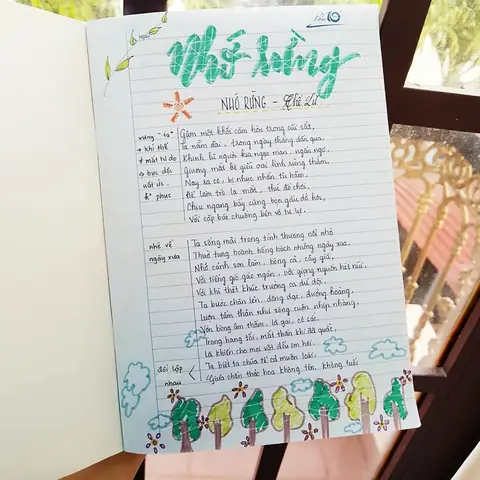 Ngày
Nhớ rừng
NHỚ RỪNG - Thế Lữ
xưng "ta"
→ khí thế
≠ mất tự do
→ bực dọc
uất ức
phục
Gặm một khối căm hờn trong cũi sắt,
Ta nằm dài, trông ngày tháng dần qua.
Khinh lũ người kia ngạo mạn, ngẩn ngơ,
Giương mắt bé giễu oai linh rừng thẳm.
Nay sa cơ, bị nhục nhằn tù hãm,
Để làm trò lạ mắt, thứ đồ chơi.
Chịu ngang bầy cùng bọn gấu dở hơi,
Với cặp báo chuồng bên vô tư lự.
nhớ về
ngày xưa
Ta sống mãi trong tình thương nỗi nhớ
Thuở tung hoành hống hách những ngày xưa.
Nhớ cảnh sơn lâm, bóng cả, cây già,
Với tiếng gió gào ngàn, với giọng nguồn hét núi,
Với khi thét khúc trường ca dữ dội,
Ta bước chân lên, dõng dạc, đường hoàng,
Lượn tấm thân như sóng cuộn nhịp nhàng,
Vờn bóng âm thầm, lá gai, cỏ sắc.
Trong hang tối, mắt thần khi đã quắc,
Là khiến cho mọi vật đều im hơi.
đối lập
nhau
Ta biết ta chúa tể cả muôn loài,
Giữa chốn thảo hoa không tên, không tuổi.